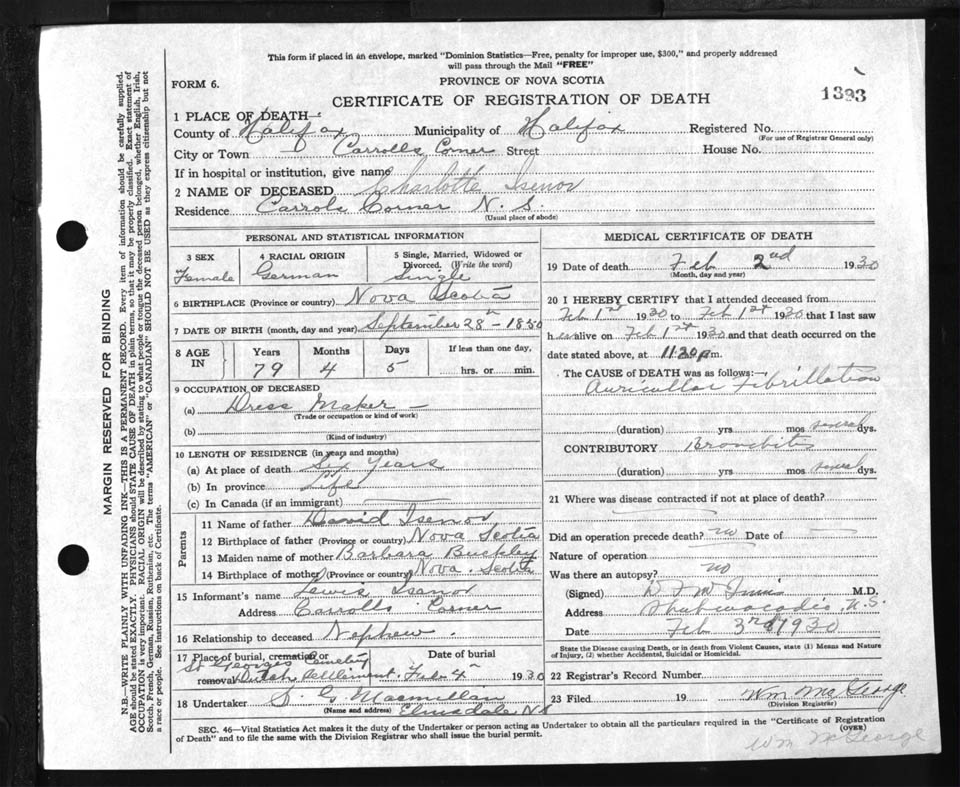 This form if placed in an envelope, marked "Dominion Statistics—Free, penalty for improper use, $300," and properly addressed
will pass through the Mail "FREE"
FORM 6.
PROVINCE OF NOVA SCOTIA
CERTIFICATE OF REGISTRATION OF DEATH
1393
1 PLACE OF DEATH—
County of Halifax Municipality of Halifax Registered No.
(For use of Registrar General only)
City or Town Carrolls Corner Street House No.
If in hospital or institution, give name
2 NAME OF DECEASED Charlotte Isenor
Residence Carrols Corner N. S.
(Usual place of abode)
PERSONAL AND STATISTICAL INFORMATION
3 SEX 4 RACIAL ORIGIN 5 Single, Married, Widowed or Divorced. (Write the word)
Female German Single
6 BIRTHPLACE (Province or country) Nova Scotia
7 DATE OF BIRTH (month, day and year) September 28th - 1850
8 AGE IN Years Months Days If less than one day,
79 4 5 hrs. or min.
9 OCCUPATION OF DECEASED
(a) Dress Maker
(Trade or occupation or kind of work)
(b)
(Kind of industry)
10 LENGTH OF RESIDENCE (in years and months)
(a) At place of death Six Years
(b) In province Life
(c) In Canada (if an immigrant)
Parents
11 Name of father David Isenor
12 Birthplace of father (Province or country) Nova Scotia
13 Maiden name of mother Barbara Buckley
14 Birthplace of mother (Province or country) Nova Scotia
15 Informant's name Lewis Isenor
Address Carrolls Corner
16 Relationship to deceased Nephew.
17 Place of burial, cremation or removal Date of burial
St Georges Cemetery
Dutch Settlement. Feb 4th 1930
18 Undertaker S. G. Macmillan
(Name and address) Elmsdale N S
MEDICAL CERTIFICATE OF DEATH
19 Date of death Feb 2nd 1930
(Month, day and year)
20 I HEREBY CERTIFY that I attended deceased from
Feb 1st 1930 to Feb 1st 1930 that I last saw
her alive on Feb 1st 1930 and that death occurred on the
date stated above, at 11.30 pm.
The CAUSE OF DEATH was as follows:—
Auricular Fibrillation
(duration) yrs mos several dys.
CONTRIBUTORY Bronchitis
(duration) yrs mos several dys.
21 Where was disease contracted if not at place of death?
Did an operation precede death? no Date of
Nature of operation
Was there an autopsy? no
(Signed) M.D.
Address Shubenacadie, N.S.
Date Feb 3rd 1930
State the Disease causing Death, or in death from Violent Causes, state (1) Means and Nature
of Injury, (2) whether Accidental, Suicidal or Homicidal.
22 Registrar's Record Number
23 Filed 19 Wm McGeorge
(Division Registrar)
SEC. 46—Vital Statistics Act makes it the duty of the Undertaker or person acting as Undertaker to obtain all the particulars required in the "Certificate of Registration
of Death" and to file the same with the Division Registrar who shall issue the burial permit.
(OVER)
Wm McGeorge
MARGIN RESERVED FOR BINDING
N.B.—WRITE PLAINLY WITH UNFADING INK—THIS IS A PERMANENT RECORD. Every item of information should be carefully supplied.
AGE should be stated EXACTLY. PHYSICIANS should STATE CAUSE OF DEATH in plain terms, so that it may be properly classified. Exact statement of
OCCUPATION is very important. RACIAL ORIGIN will be described by stating to what people or tongue the deceased person belonged, whether English, Irish,
Scotch, French, German, Russian, Ruthenian, etc. The terms "AMERICAN" or "CANADIAN" SHOULD NOT BE USED as they express citizenship but not
a race or people. See instructions on back of Certificate.